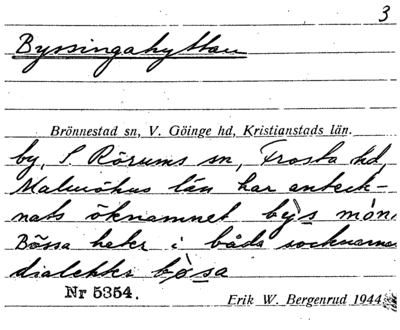 3
Byssingahyttan
Brönnestad sn, V. Göinge hd, Kristianstads län.
by, S. Rörums sn, Frosta hd,
Malmöhus län har anteck-
nats öknamnet bỳs mòn.
Bössa heter i båda socknarnas
dialekter bòsa
Nr 5354.
Erik W. Bergenrud 1944